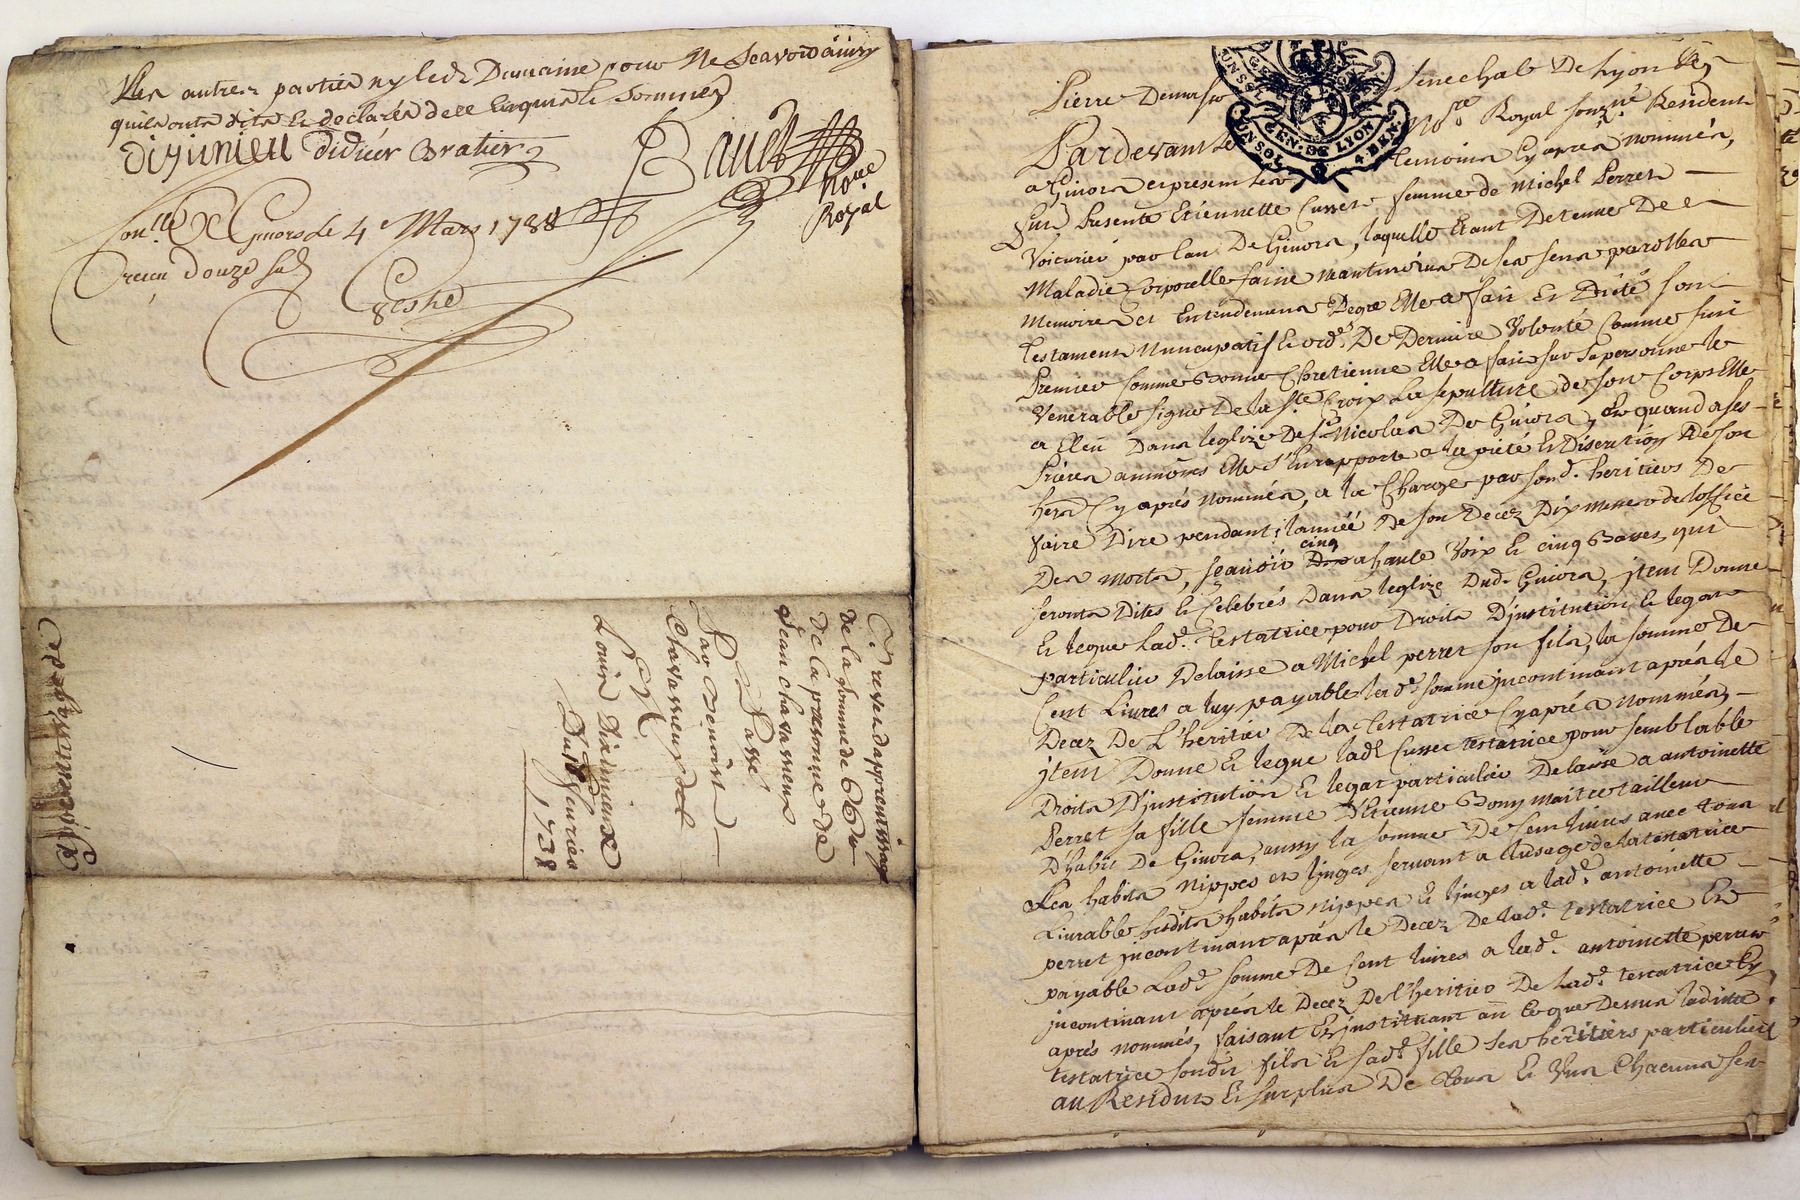 Les autres parties ny led. Dumaine pour ne Scavoir ainsy
quils onts dits et declarés de ce enquis et Sommés
Dejunieu Didier Bratier
not.re Royal
Con.llé a Givors le 4 Mars 1738
Receu douze sols
apprentissage de
Brevet dapprentissage
de la somme de 66 ₶
de la personne de
Jean Chavasseux
Passé
Par Benoist
Chavasseux
a
Louis
Du 18 feuvrier
1738
GEN. DE LYON
4. DEN.
Pierre Senechal De Lyon
Pardevant Le No.re Royal souz.né Resident
a Givors et present les temoins Cy aprés nommés,
fut Presente Etiennette Cusset femme de Michel Perret
Voiturier par Eau De Givors, laquelle Etant Detenue De
Maladie Corporelle saine neantmoins De ses sens parolles
Memoires et Entendements De gré Elle a fait et Dicté son
testament Nuncupatif et ord.e De Derniere Volonté Comme suit
Premier Comme Bonne Chretienne Elle a fait sur sa personne le
Venerable signe De la S.te Croix La sepulture de son Corps Elle
a Eleu Dans leglize De S.t Nicolas De Givors, et quand a ses
Prieres aumônes Elle s'En rapporte a la pieté et Discretion De son
her.er Cy aprés nommés, a la Charge par sond. heritiers De
faire Dire pendant l'année De son Decez Dix messes de loffice
Des morts, sçauoir cinq a haute Voix et cinq Basses, qui
seronts Dites et Celebrés Dans leglize Dud. Givors, jtem Donne
et legue lad.e testatrice pour Droits D'jnstitution et legat
particulier Delaisse a Michel perret son fils, la somme De
Cent Livres a luy payable lad.e somme jncontinant aprés le
Decez De L'heritier De la testatrice Cy aprés nommés,
jtem Donne et legue lad.e Cusset testatrice pour semblable
Droits D'jnstitution et legat particulier Delaisse a antoinette
Perret sa fille femme D'Etienne Bony maitre tailleur
D'habit De Givors, aussy la somme De Cent livres avec tous
Les habits Nippes et linges servant a lusage de la testatrice
Livrable lesdits habits nippes et linges a lad.e antoinette
perret jncontinant aprés le Decez De lad.e testatrice Et
payable Lad.e somme De Cent livres a lad.e antoinette perret
jncontinant aprés le Decez De l'heritier De lad.e testatrice Cy
aprés nommés, faisant et jnstituant en Ce que Dessus laditte
testatrice sondit fils et sad.e fille ses heritiers particuliers
au Residus et surplus De tous et Uns Chacuns ses